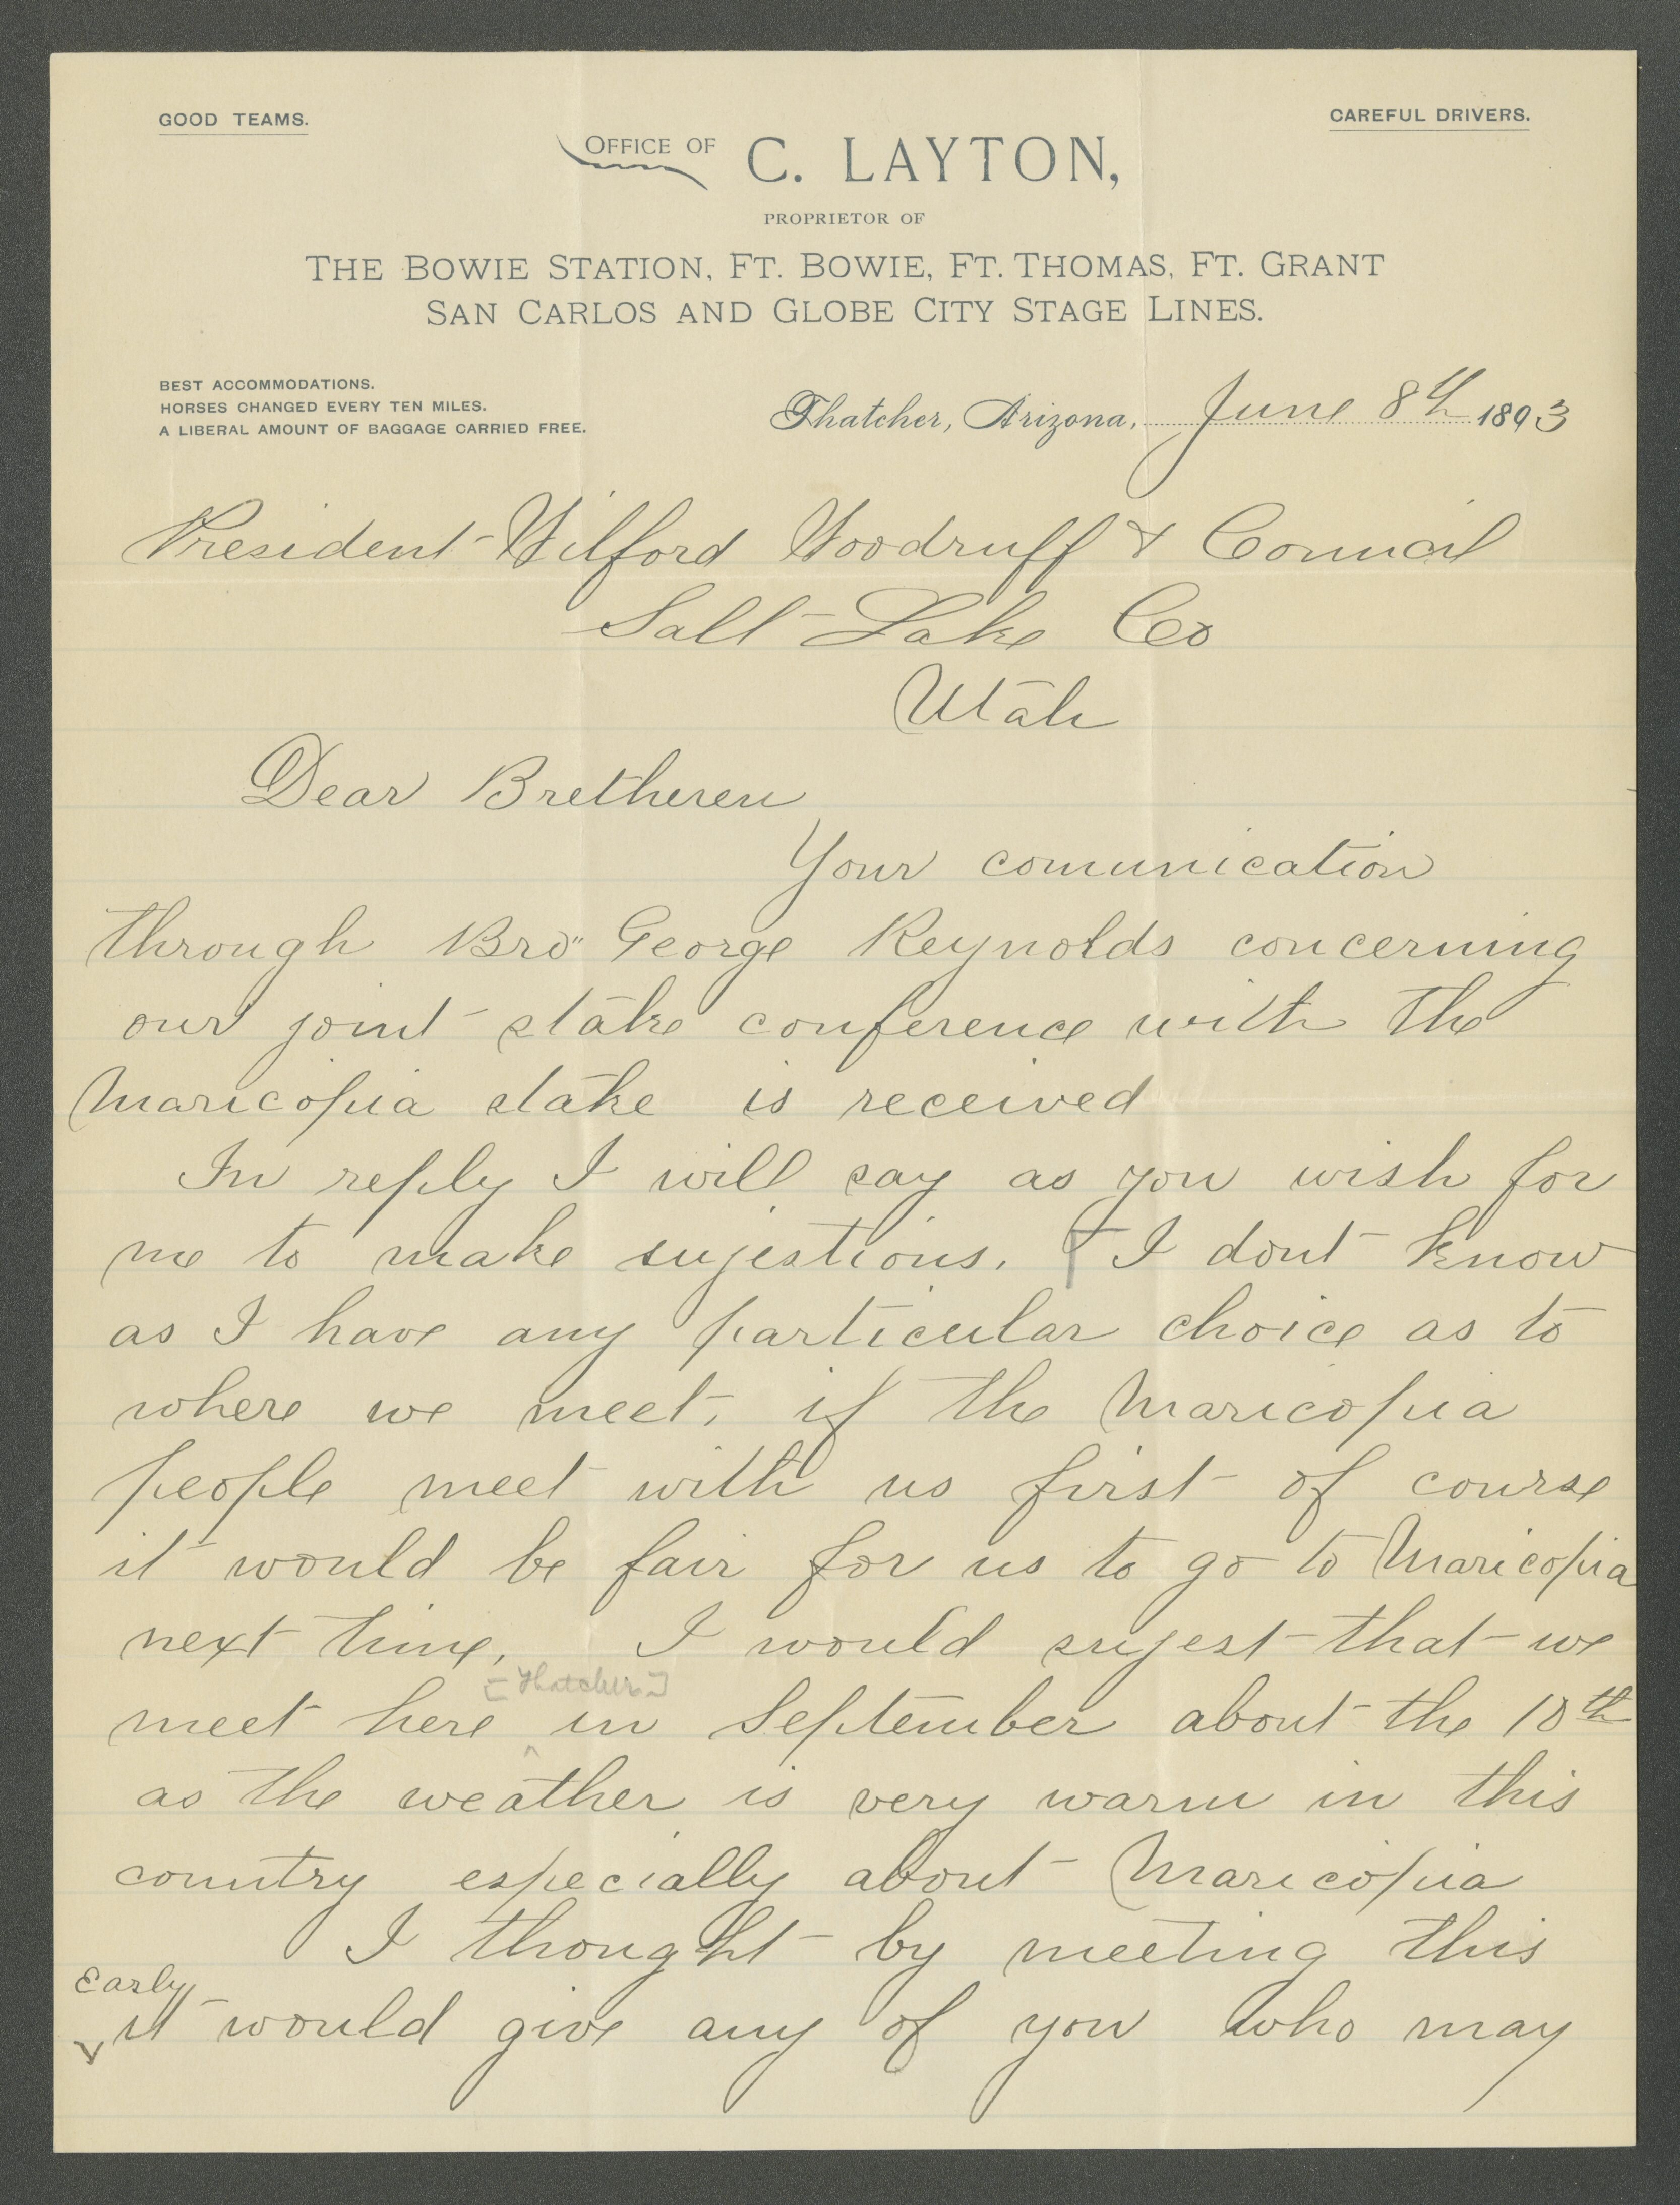 GOOD TEAMS.
CAREFUL DRIVERS.
OFFICE OF C. LAYTON,
PROPRIETOR OF
THE BOWIE STATION, FT. BOWIE, FT. THOMAS, FT. GRANT
SAN CARLOS AND GLOBE CITY STAGE LINES.
BEST ACCOMMODATIONS.
HORSES CHANGED EVERY TEN MILES.
A LIBERAL AMOUNT OF BAGGAGE CARRIED FREE.
Thatcher, Arizona, June 8th 1893
President Wilford Woodruff & Council
Salt Lake Co
Utah
Dear Bretheren
Your comunication
through Bro" George Reynolds concerning
our joint stake conference with the
Maricopia stake is received
In reply I will say as you wish for
me to make sujestions. I dont know
as I have any particular choice as to
where we meet, if the Maricopia
people meet with us first of course
it would be fair for us to go to Maricopia
next time, I would sujest that we
[Thatcher]
meet here ^ in September about the 10th
as the weather is very warm in this
country especially about Maricopia
I thought by meeting this
Early
it would give any of you who may